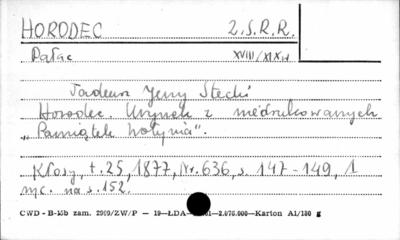 HORODEC Z.S.R.R.
Pałac XVIII/XIX w
Tadeusz Jerzy Stecki
Horodec. Urywek z niedrukowanych
„Pamiątek Wołynia".
Kłosy, t. 25, 1877, Nr. 636, s. 147-149, 1
ryc. na s. 152.
CWD - B-15b zam. 2909/ZW/P — 10—ŁDA— —2.076.000—Karton A1/180 g